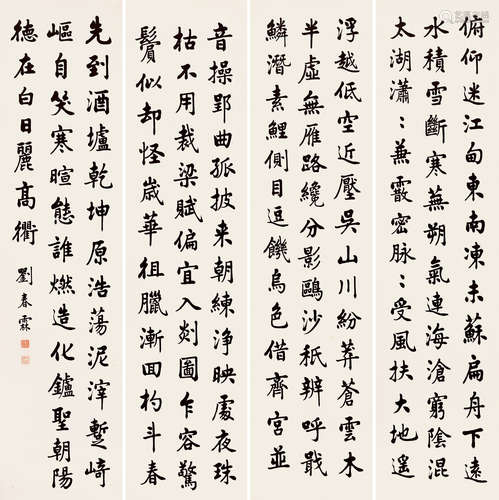 俯仰迷江甸東南凍未蘇扁舟下遠
水積雪斷寒蕪朔氣連海滄窮陰混
太湖瀟〻兼霰密脉〻受風扶大地遥
浮越低空近壓吳山川紛莽蒼雲木
半虛無雁路纔分影鷗沙秖辨呼戢
鱗潛素鯉側目逗饑烏色借齊宮並
音操郢曲孤披来朝練淨映處夜珠
枯不用裁梁賦偏宜入剡圖乍容驚
鬢似却怪歲華徂臘漸回杓斗春
先到酒壚乾坤原浩蕩泥滓蹔崎
嶇自笑寒暄態誰燃造化鑪聖朝陽
德在白日麗高衢
劉春霖